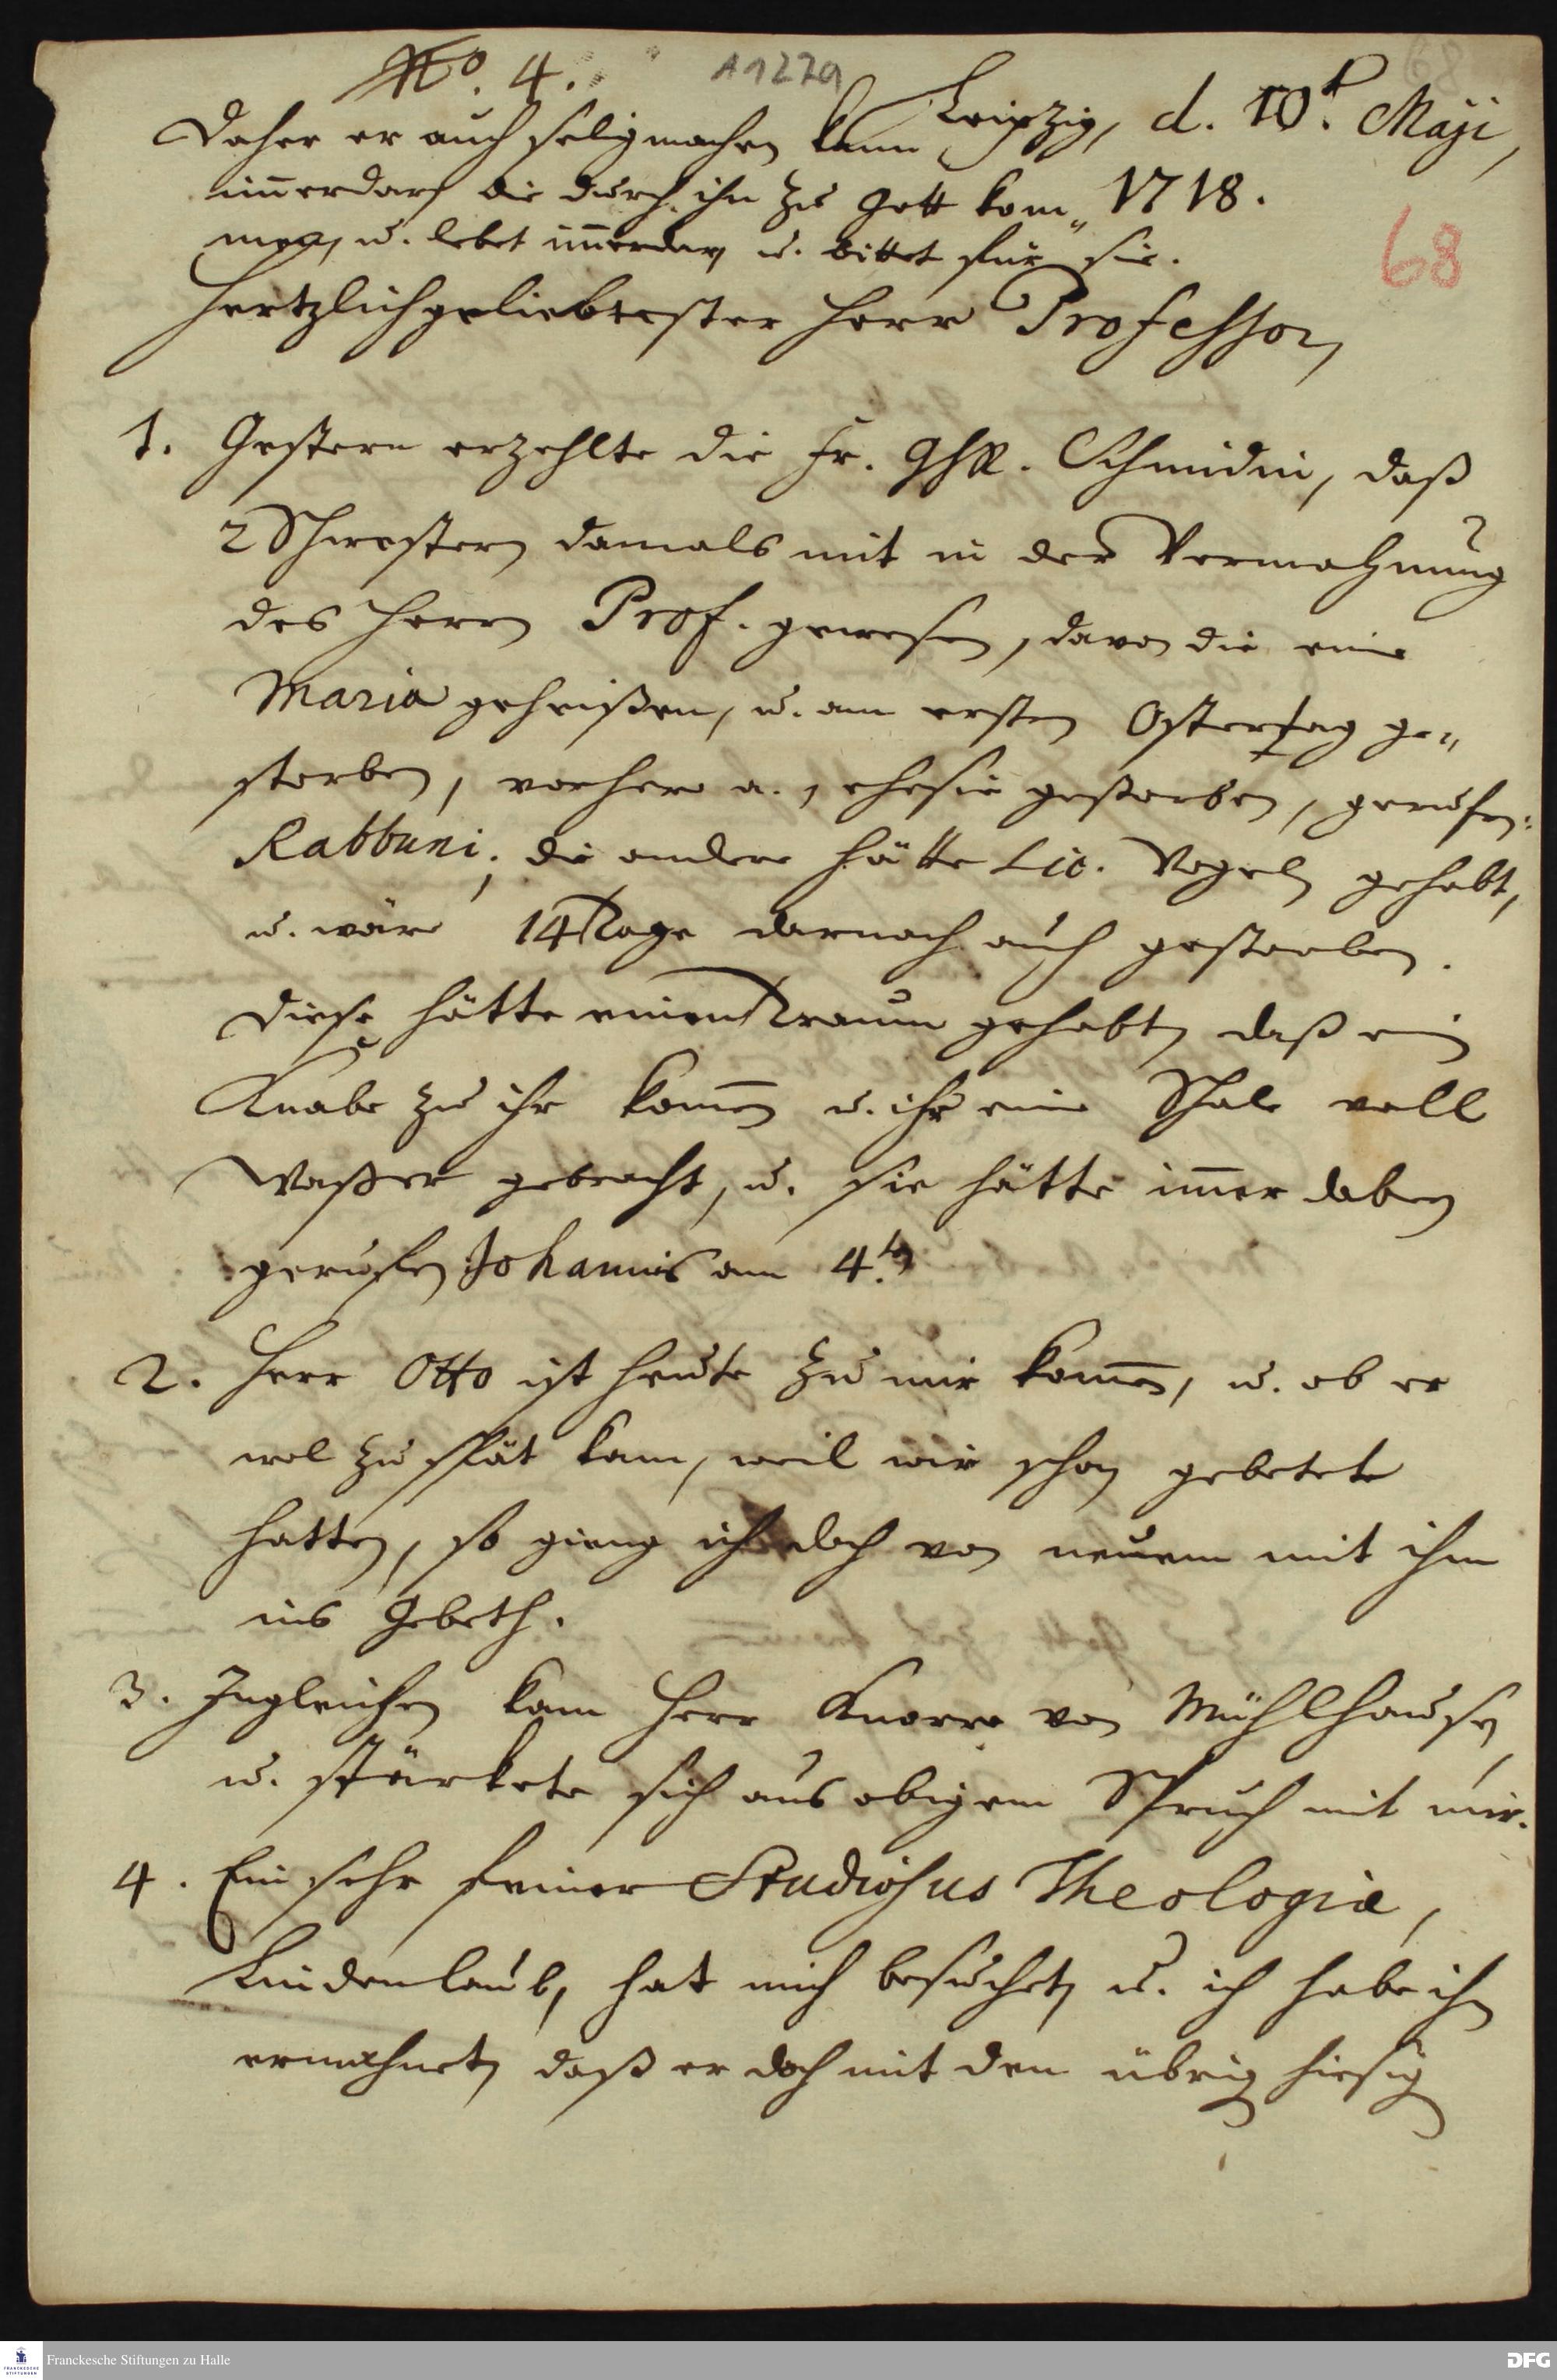 No. 4.
A 122a
68
Leipzig, d. 10.t Maji,
1718.
68
Daher er auch selig machen kan
im̄erdar die durch ihn zu Gott kom„
men, u. lebet im̄erdar u. bittet für sie.
Hertzlichgeliebtester Herr Professor,
1. Gestern erzehlte die Fr. Schmidin, daß
2 Schwestern damals mit in der Vermahnung
des Herrn Prof. gewesen, davon die eine
Maria geheißen, u. am ersten Ostertag ge„
storben, vorhero a., ehe sie gestorben, geruffen:
Rabbuni; die andere hätte Lic. Vogeln gehabt,
u. wäre 14 Tage darnach auch gestorben.
Diese hätte einen Traum gehabt, daß ein
Knabe zu ihr kom̄en u. ihr eine Schale voll
Waßer gebracht, u. sie hätte im̄er dabey
geruffen Johannis am 4.ten
2. Herr Otto ist heute zu mir kom̄en, u. ob er
wol zu spät kam, weil wir schon gebetet
hatten, so gieng ich doch von neuem mit ihm
ins Gebeth.
3. Ingleichen kam Herr Knorre von Mühlhausen,
u. stärkete sich aus obigem Spruch mit mir.
4. Ein sehr feiner Studiosus Theologiæ,
Lindenlaub, hat mich besuchet, u. ich habe ihn
ermahnet, daß er doch mit den übrig hiesig
Franckesche Stiftungen zu Halle
FRANCKESCHE STIFTUNGEN
DFG